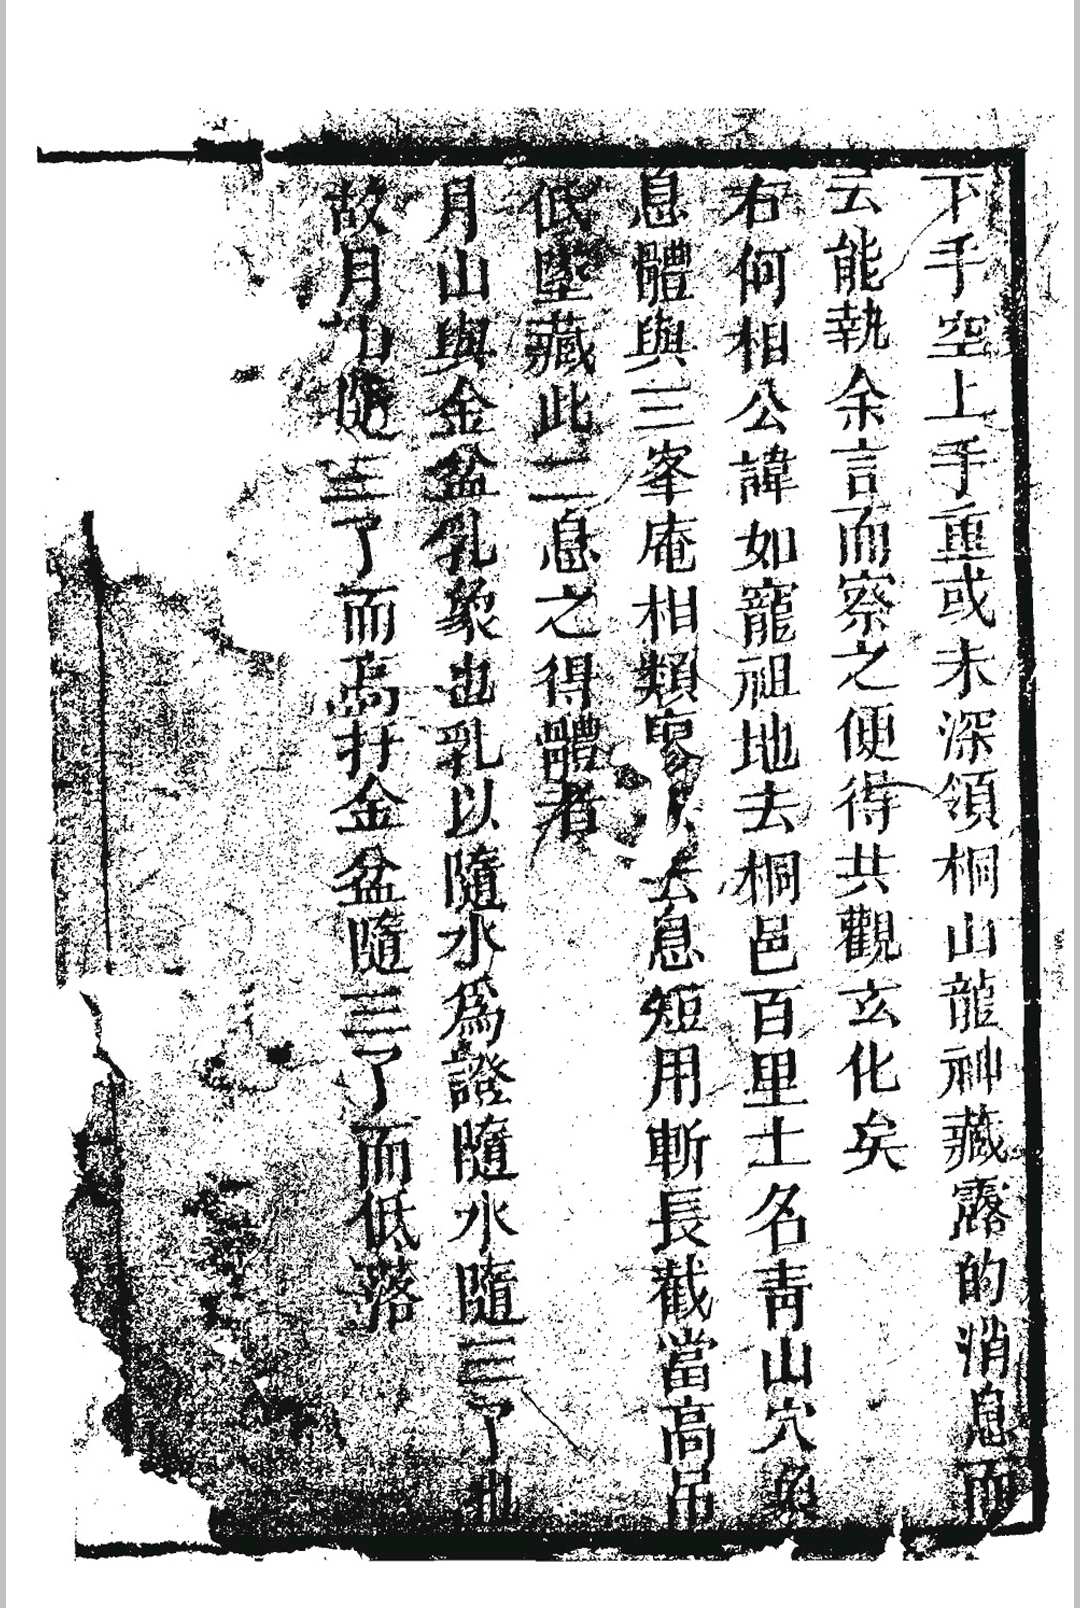 下手空上手重或未深領桐山龍神藏露的消息而
云能執余言而察之便得共觀玄化矣
右何相公諱如寵祖地去桐邑百里土名青山穴
息體與三峯庵相類去息短用斬長截當高吊
低墜藏此二息之得體者
月山與金盆乳象也乳以隨水爲證隨水隨三了也
故月隨三了而高扦金盆隨三了而低落